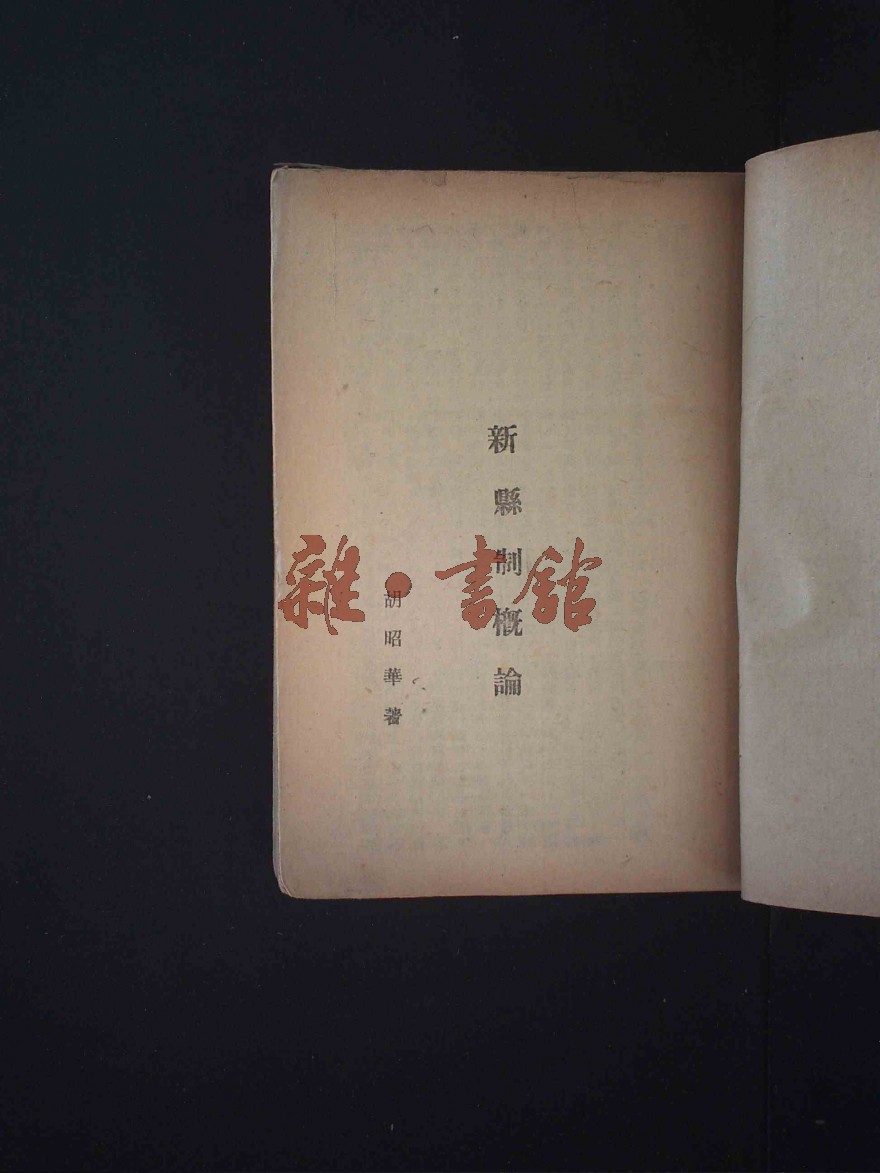 新縣制概論
胡昭華著
雜·書館